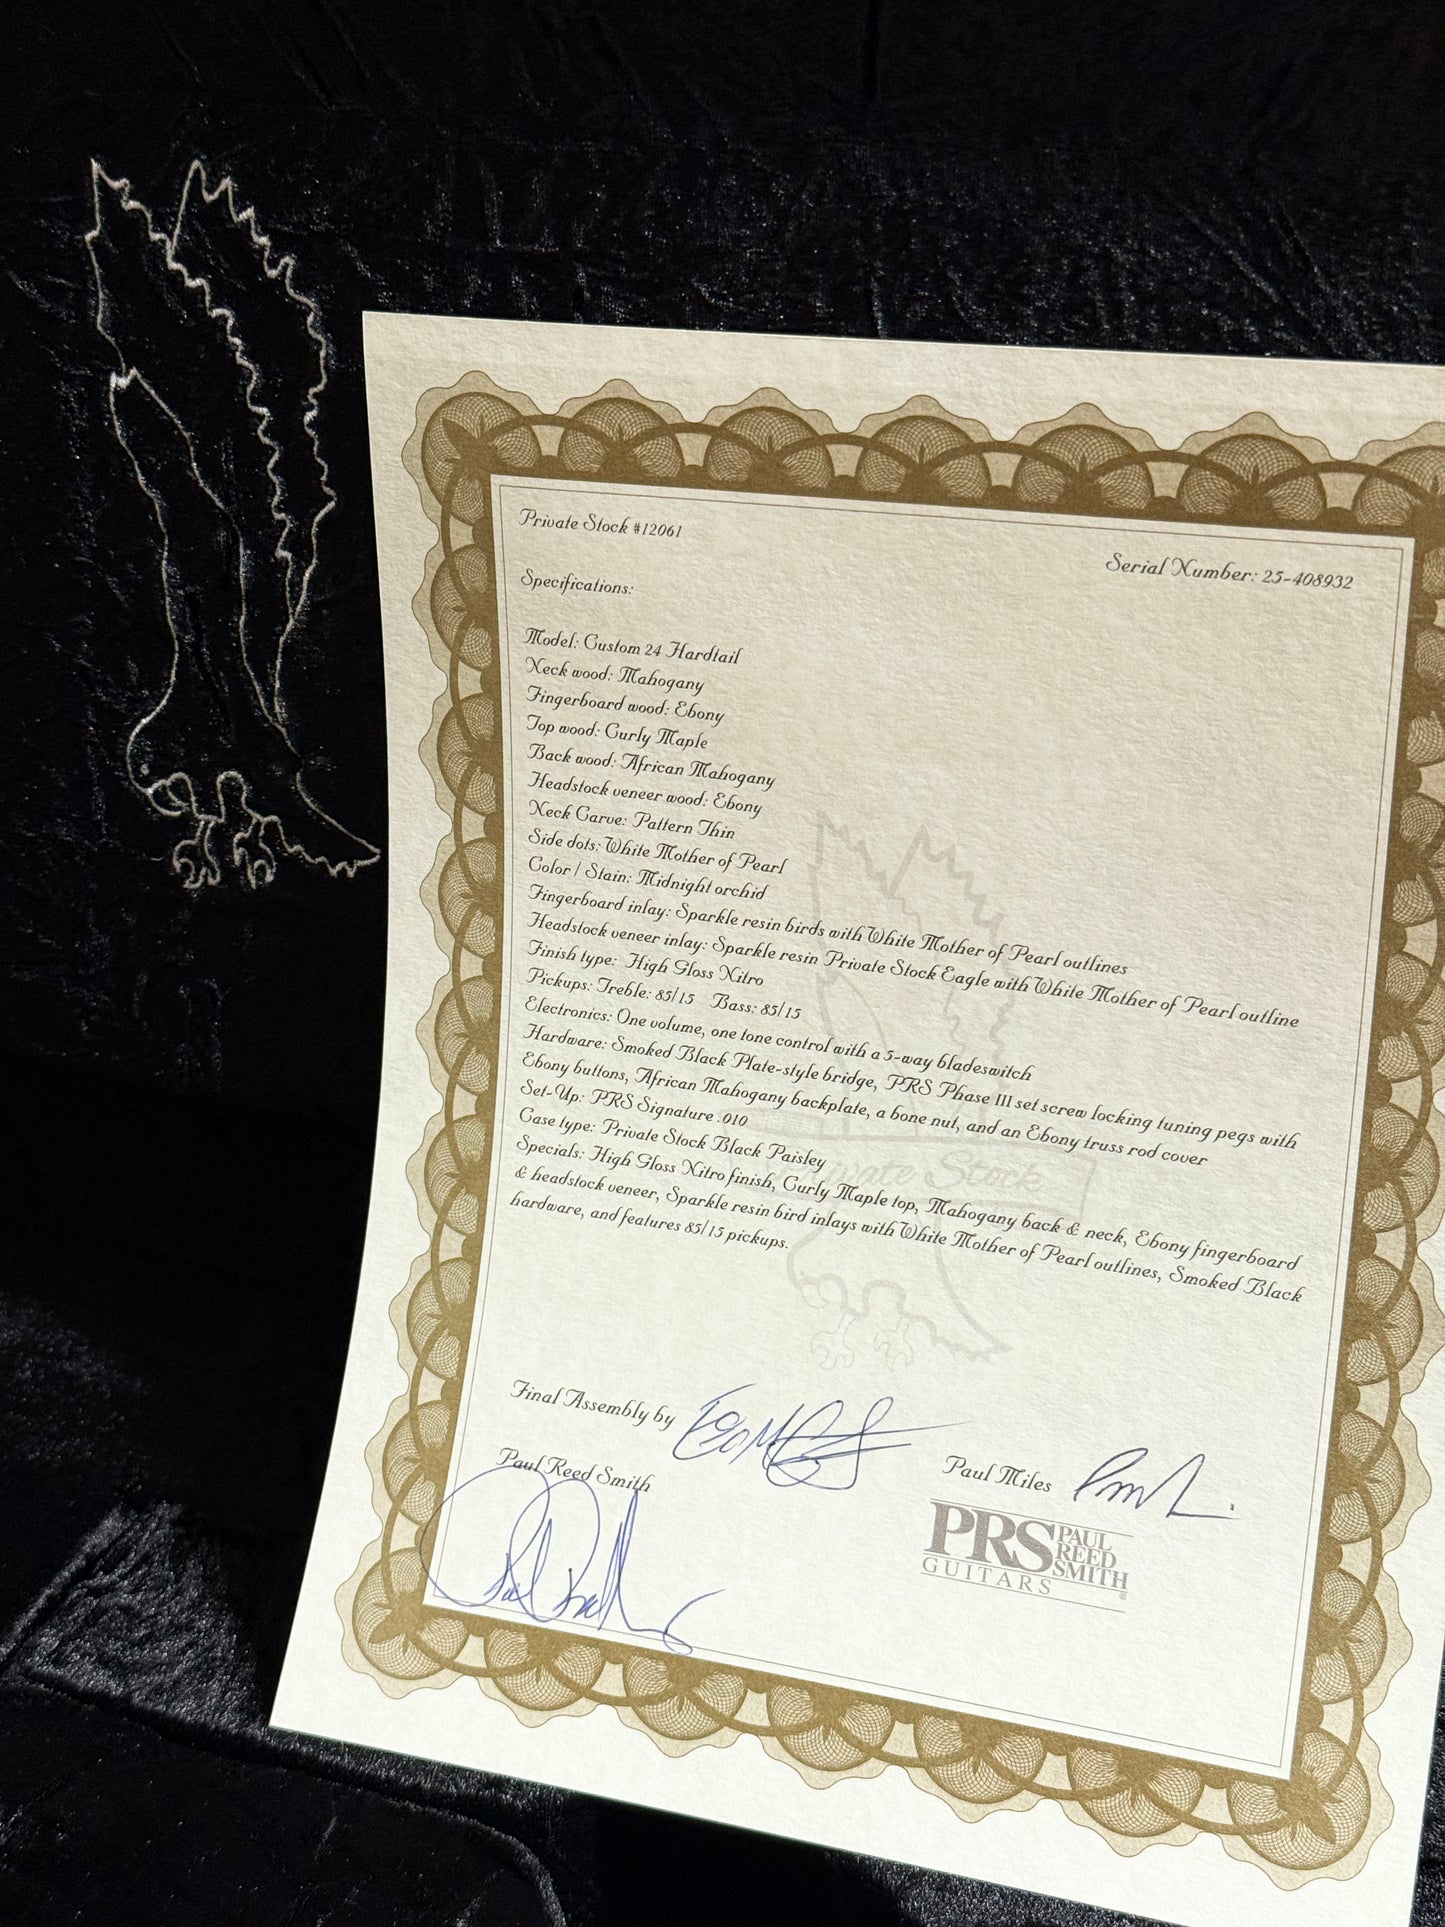 Private Stock #12061
Serial Number: 25-408932
Specifications:
Model: Custom 24 Hardtail
Neck wood: Mahogany
Fingerboard wood: Ebony
Top wood: Curly Maple
Back wood: African Mahogany
Headstock veneer wood: Ebony
Neck Carve: Pattern Thin
Side dots: White Mother of Pearl
Color / Stain: Midnight orchid
Fingerboard inlay: Sparkle resin birds with White Mother of Pearl outlines
Headstock veneer inlay: Sparkle resin Private Stock Eagle with White Mother of Pearl outline
Finish type: High Gloss Nitro
Pickups: Treble: 85/15 Bass: 85/15
Electronics: One volume, one tone control with a 5-way bladeswitch
Hardware: Smoked Black Plate-style bridge, PRS Phase III set screw locking tuning pegs with
Ebony buttons, African Mahogany backplate, a bone nut, and an Ebony truss rod cover
Set-Up: PRS Signature .010
Case type: Private Stock Black Paisley
Specials: High Gloss Nitro finish, Curly Maple top, Mahogany back & neck, Ebony fingerboard
& headstock veneer, Sparkle resin bird inlays with White Mother of Pearl outlines, Smoked Black
hardware, and features 85/15 pickups.
Private Stock
Final Assembly by
Paul Miles
Paul Reed Smith
PRS PAUL REED SMITH
GUITARS